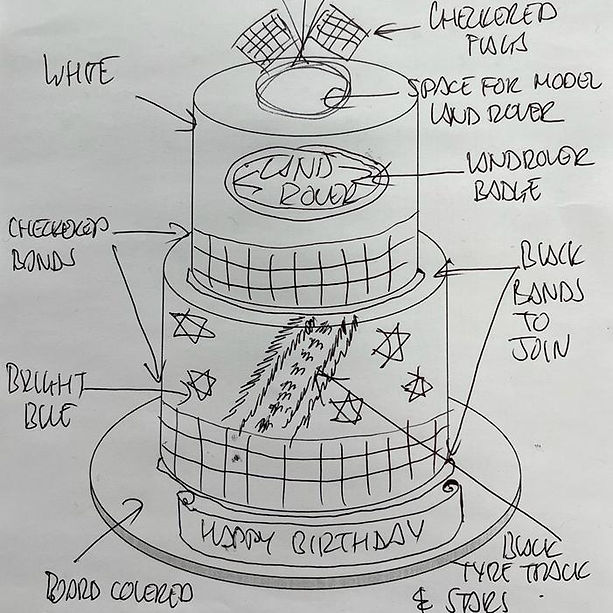 CHECKERED
FLAGS
WHITE
SPACE FOR MODEL
LAND ROVER
LAND
ROVER
LANDROVER
BADGE
CHECKERED
BANDS
BLACK
BANDS
TO
JOIN
BRIGHT
BLUE
HAPPY BIRTHDAY
BLACK
TYRE TRACK
& STARS
BOARD COVERED